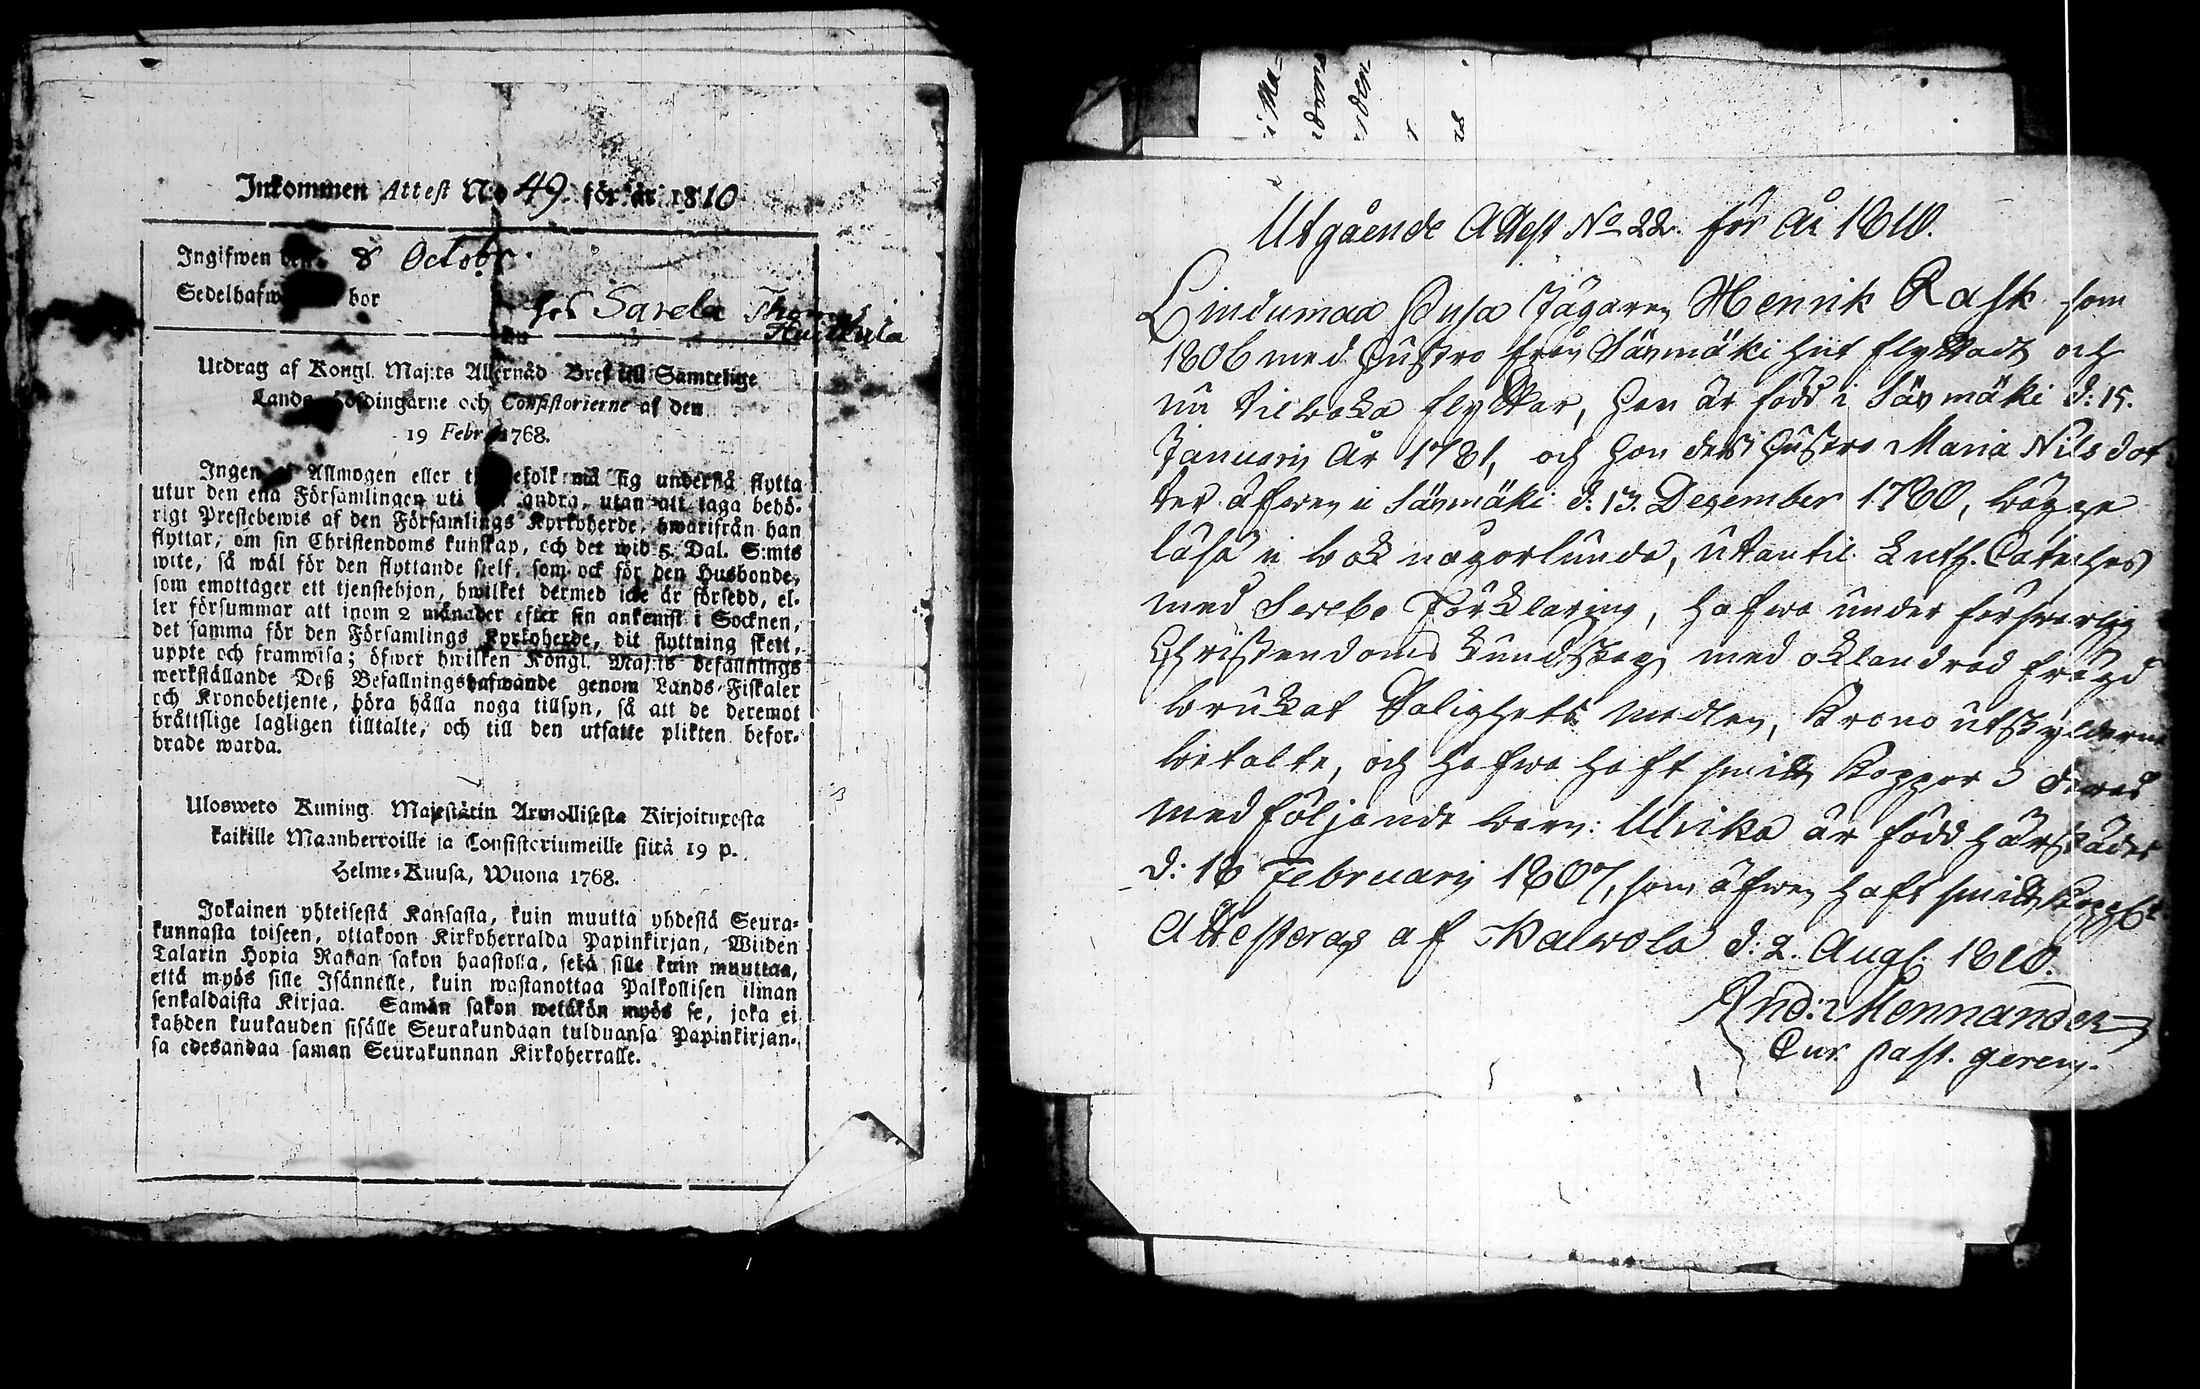 Inkommen Attest No 49. för år 1810
Ingifwen den 8 Octobr.
Sedelhafw bor
hos Savela Thomas
Huittula
Utdrag af Kongl. Maj:ts Allernåd Bref till Samtelige
Landshöfdingarne och Consistorierne af den
19 Febr. 1768.
Ingen af Allmogen eller tjenstefolk må sig understå flytta
utur den ena Församlingen uti den andra, utan att taga behö-
rigt Prestebewis af den Församlings Kyrkoherde, hwarifrån han
flyttar, om sin Christendoms kunskap, och det wid 5. Dal. S:mts
wite, så wäl för den flyttande sielf, som ock för den Husbonde,
som emottager ett tjenstehjon, hwilket dermed icke är försedd, el-
ler försummar att inom 2 månader efter sin ankomst i Socknen,
det samma för den Församlings Kyrkoherde, dit flyttning skett,
uppte och framwisa; öfwer hwilken Kongl. Maj:ts befallnings
werkställande Deß Befallningshafwande genom Lands-Fiskaler
och Kronobetjente, böra hålla noga tillsyn, så att de deremot
bråttslige lagligen tilltalte, och till den utsatte plikten befor-
drade warda.
Ulosweto Kuning. Majestätin Armollisesta Kirjoituxesta
kaikille Maanherroille ja Consistoriumeille siitä 19 p.
Helme-Kuusa, Wuona 1768.
Jokainen yhteisestä Kansasta, kuin muutta yhdestä Seura-
kunnasta toiseen, ottakoon Kirkoherralda Papinkirjan, Wiiden
Talarin Hopia Rahan sakon haastolla, sekä sille kuin muuttaa,
että myös sille Isännelle, kuin wastanottaa Palkollisen ilman
senkaldaista Kirjaa. Saman sakon wetäkön myös se, joka ei
kahden kuukauden sisälle Seurakundaan tulduansa Papinkirjan-
sa edesandaa saman Seurakunnan Kirkoherralle.
Utgående Attest No 22. för År 1810.
Lindumaa Jägaren Henrik Rask som
1806 med hustro från Säxmäki hit flyttadt och
nu tilbaka flyttar, han är född i Säxmäki d: 15.
Januarii År 1781, och hon dess hustro Maria Nilsdot
ter äfwen i Säxmäki d: 13. Dezember 1780, bägge
läsa i bok någorlunda, utantil Luth. Cateches
med Swebe Förklaring, hafwa under förswarlig
Christendoms kundskap med oklandrad frägd
brukat Salighets medlen, Krono utskylderne
betalte, och hafwa haft smitt koppor
med följande barn: Ulrika är född härstädes
d: 16 Februarii 1807, som äfwen haft smitt kopp:
Attesteras af Kalwola d: 2. Aug. 1810.
And: Mennander
Cur. past. gerens.